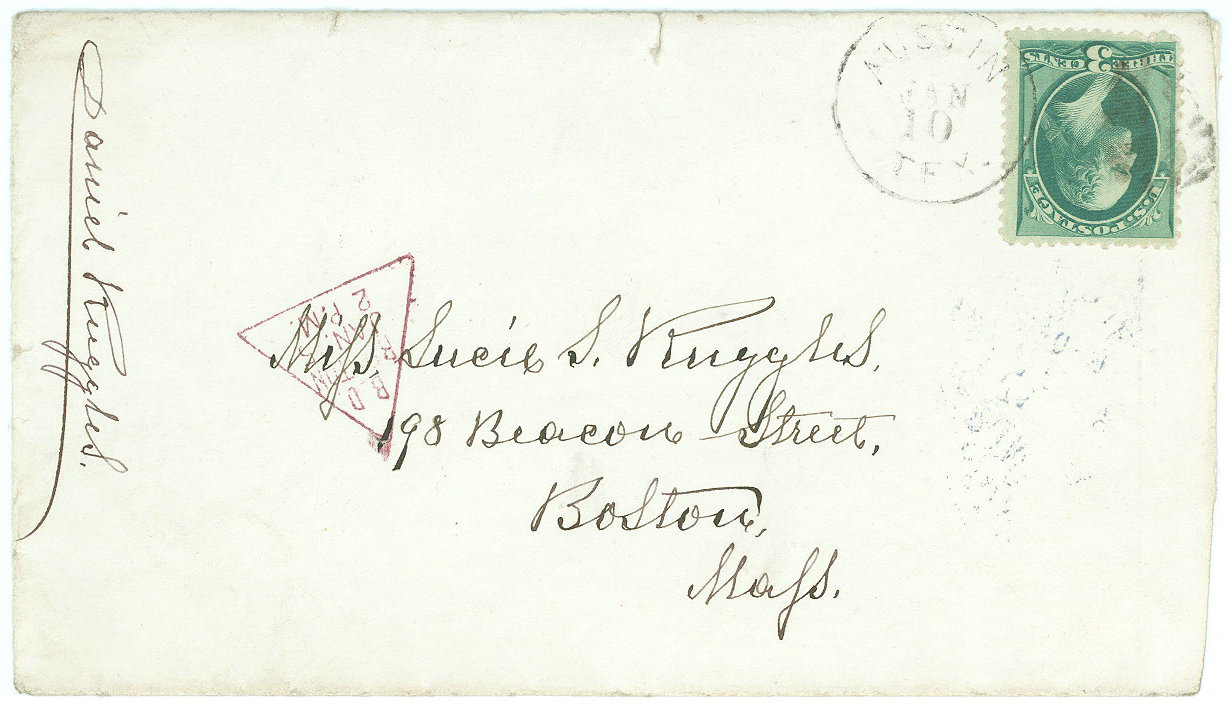 Daniel Ruggles.
AUSTIN
JAN
10
TEX.
U.S. POSTAGE
THREE 3 CENTS
2 P.M.
JAN.
Miss. Lucie S. Ruggles.
198 Beacon Street,
Boston,
Mass.